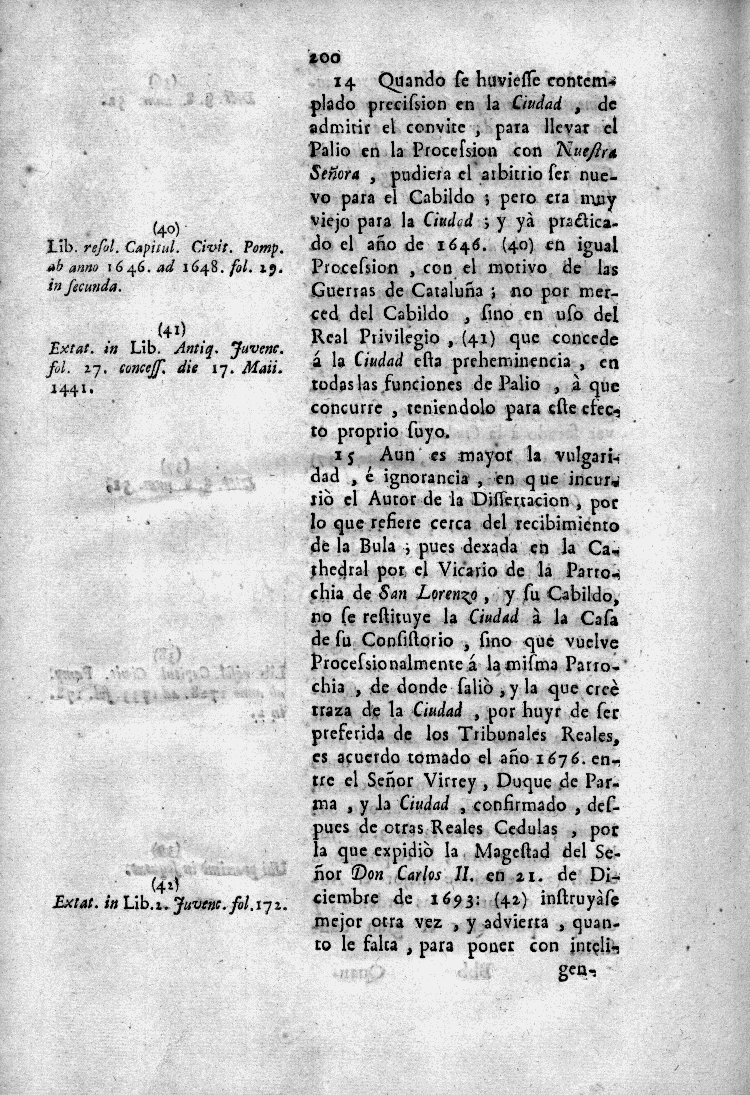 200
14 Quando ſe huvieſſe contem-
plado preciſsion en la Ciudad , de
admitir el convite , para llevar el
Palio en la Proceſsion con Nueſtra
Señora , pudiera el arbitrio ſer nue-
vo para el Cabildo ; pero era muy
viejo para la Ciudad ; y yà practica-
do el año de 1646. (40) en igual
Proceſsion , con el motivo de las
Guerras de Cataluña ; no por mer-
ced del Cabildo , ſino en uſo del
Real Privilegio , (41) que concede
á la Ciudad eſta preheminencia , en
todas las funciones de Palio , à que
concurre , teniendolo para eſte efec-
to proprio ſuyo.
15 Aun es mayor la vulgari-
dad , é ignorancia , en que incur-
riò el Autor de la Diſſertacion , por
lo que refiere cerca del recibimiento
de la Bula ; pues dexada en la Ca-
thedral por el Vicario de la Parro-
chia de San Lorenzo , y ſu Cabildo,
no ſe reſtituye la Ciudad à la Caſa
de ſu Conſiſtorio , ſino que vuelve
Proceſsionalmente á la miſma Parro-
chia , de donde ſaliò , y la que creè
traza de la Ciudad , por huyr de ſer
preferida de los Tribunales Reales,
es acuerdo tomado el año 1676. en-
tre el Señor Virrey , Duque de Par-
ma , y la Ciudad , confirmado , deſ-
pues de otras Reales Cedulas , por
la que expidiò la Mageſtad del Se-
ñor Don Carlos II. en 21. de Di-
ciembre de 1693: (42) inſtruyàſe
mejor otra vez , y advierta , quan-
to le falta , para poner con inteli-
gen-
(40)
Lib. reſol. Capitul. Civit. Pomp.
ab anno 1646. ad 1648. fol. 29.
in ſecunda.
(41)
Extat. in Lib. Antiq. Juvenc.
fol. 27. conceſſ. die 17. Maii.
1441.
(42)
Extat. in Lib.2. Juvenc. fol.172.